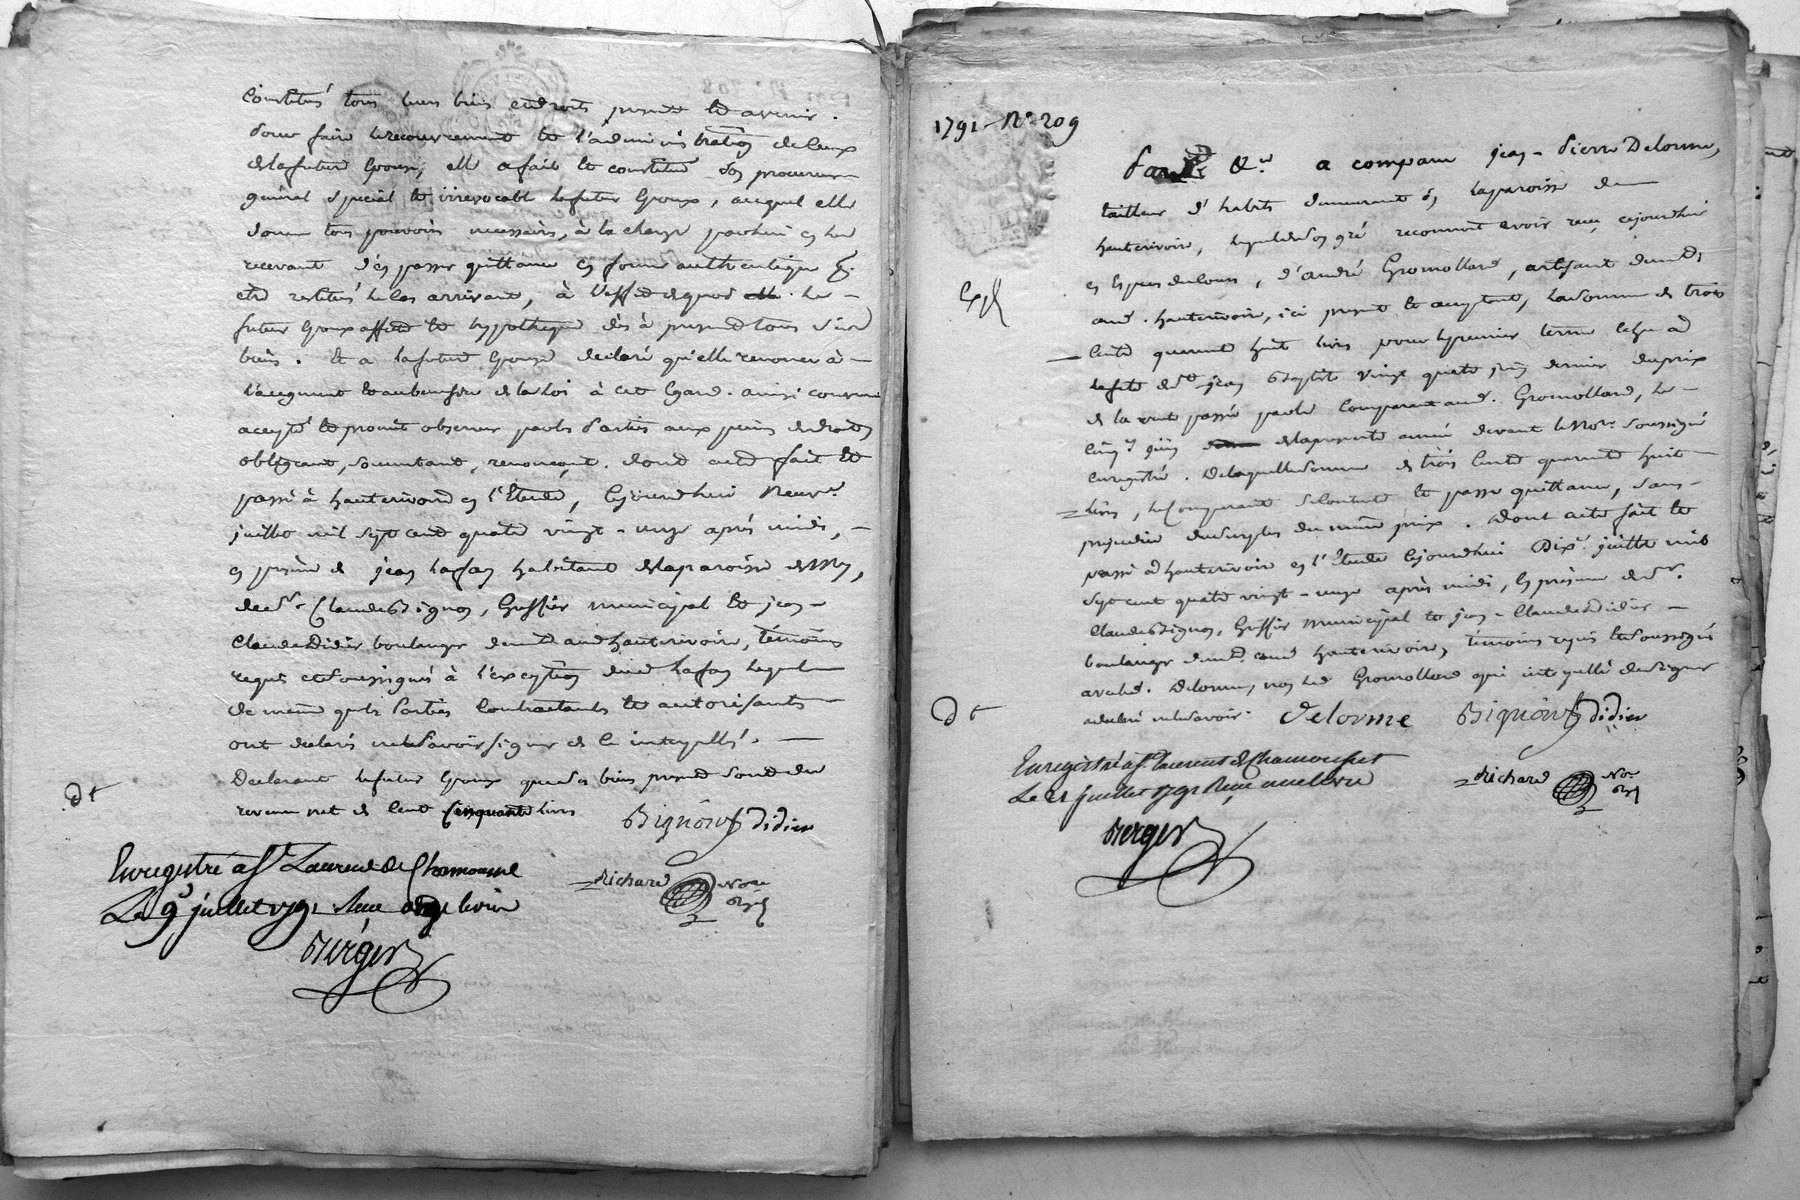 constitués tous leurs biens et droits présents et avenir.
pour faire le recouvrement et l'administration de ceux
de la future Epouse, elle a fait et constitué son procureur
général spécial et irrévocable le futur Epoux, auquel elle
donne tous pouvoirs nécessaires, à la charge par lui en les
recevant d'en passer quittance en forme authentique
restitués le cas arrivant, à l'effet de quoi le
futur Epoux affecte et hypothèque dès à présent tous
biens. Et a la future Epouse déclaré qu'elle renonce à
de la loi à cet égard. ainsi convenu
accepté et promit observer par les Parties aux peines de droits
obligeant, soumettant, renonçant. dont acte fait et
passé à hauterivoire en l'Etude, cejourdhui neuve.
juillet mil sept cent quatre vingt-onze après midi,
en présence de jean habitant de la paroisse
de sr. Claude Bignon, Greffier municipal et jean
Claude Didier boulanger demt. aud. hauterivoire, témoins
requis et soussignés à l'exception dud. lequel
de même que les Parties contractantes et autorisantes
ont déclaré ne le savoir signer de ce interpellés.
Déclarant le futur Epoux que ses biens présents sont du
revenu net de cent cinquante livres
Bignon Didier
Enregistré a St. Laurent de Chamousset
Le 9 juillet 1791 Reçu livres
Richard Nore
Berger
1791 - No. 209
Par a comparu jean-Pierre Delorme,
tailleur d'habits demeurant en la paroisse de
hauterivoire, lequel de son gré reconnoit avoir reçu cejourdhui
en espèces de cours, d'andré Gromollard, artisant demt.
aud. hauterivoire, ici présent et acceptant, la somme de trois
cents quarante huit livres pour le premier terme échu à
la fête de St. jean Baptiste vingt quatre juin dernier du prix
de la vente passée par le comparant aud. Gromollard, le
juin de la présente année devant le Nore. soussigné
enregistré. De laquelle somme de trois cents quarante huit
livres, le comparant se contente et passe quittance, sans
préjudice du surplus du même prix. Dont acte fait et
passé à hauterivoire en l'Etude cejourdhui Dix. juillet mil
sept cent quatre vingt-onze après midi, en présence de sr.
Claude Bignon, Greffier municipal et jean-Claude Didier
boulanger demt. aud. hauterivoire, témoins requis et soussignés
avec led. Delorme, non led. Gromollard qui interpellé de signer
a déclaré ne le savoir. Delorme Bignon Didier
Enregistré a St. Laurent de Chamousset
Le 21 juillet 1791 Reçu une livre
Richard Nore
Berger